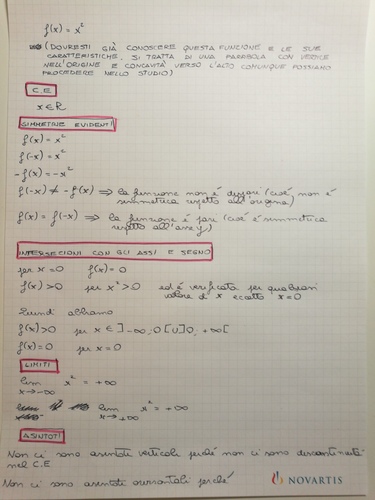 f(x) = x²
(DOVRESTI GIÀ CONOSCERE QUESTA FUNZIONE E LE SUE
CARATTERISTICHE, SI TRATTA DI UNA PARABOLA CON VERTICE
NELL'ORIGINE E CONCAVITÀ VERSO L'ALTO COMUNQUE POSSIAMO
PROCEDERE NELLO STUDIO)
C.E
x∈R
SIMMETRIE EVIDENTI
f(x) = x²
f(-x) = x²
-f(x) = -x²
f(-x) ≠ -f(x) ⇒ la funzione non è dispari (cioè non è
simmetrica rispetto all'origine)
f(x) = f(-x) ⇒ la funzione è pari (cioè è simmetrica
rispetto all'asse y)
INTERSEZIONI CON GLI ASSI E SEGNO
per x=0 f(x)=0
f(x)>0 per x²>0 ed è verificata per qualsiasi
valore di x eccetto x=0
Quindi abbiamo
f(x)>0 per x∈]-∞;0[∪]0,+∞[
f(x)=0 per x=0
LIMITI
lim x² = +∞
x→-∞
lim x² = +∞
x→+∞
ASINTOTI
Non ci sono asintoti verticali perché non ci sono discontinuità
nel C.E
Non ci sono asintoti orizzontali perché
NOVARTIS